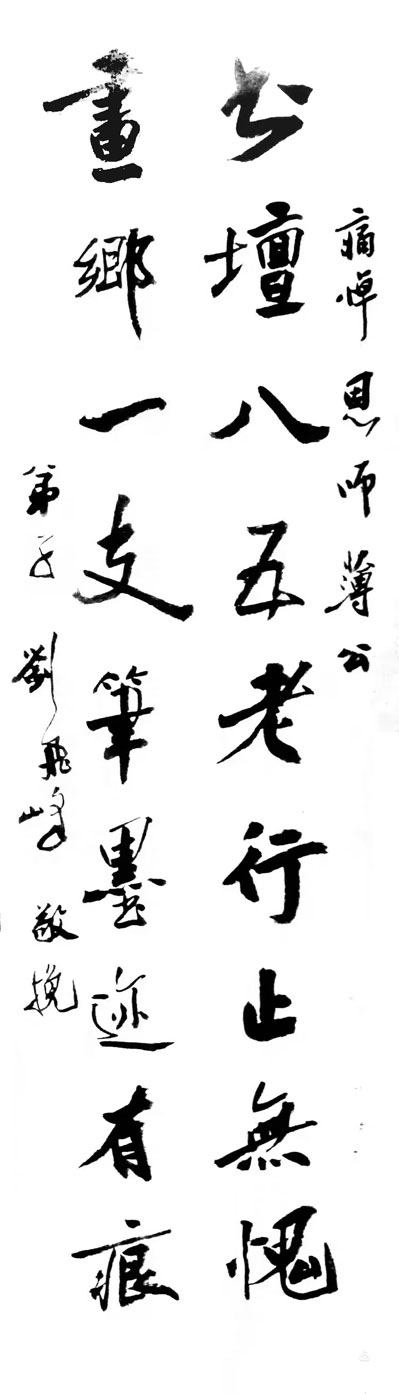 痛悼恩师薄公
书壇八五老行止無愧
畫鄉一支筆墨迹有痕
弟子劉飛峰敬挽